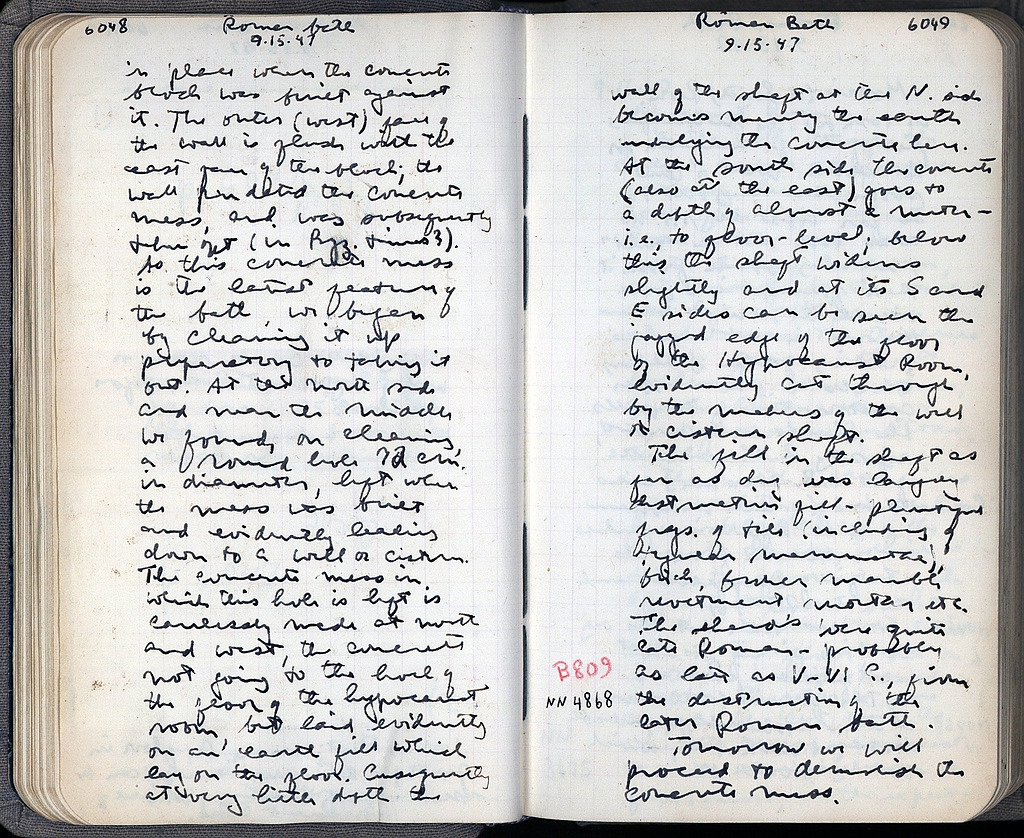 6048 Roman bath
9.15.47
in place when the concrete
block was built against
it. The outer (west) face of
the wall is flush with the
east face of the block; the
wall the concrete
mess, and was subsequently
(in Byz. times?).
As this concrete mess
is the latest feature of
the bath, we began
by cleaning it up
preparatory to taking it
out. At the north side
and near the middle
we found, on cleaning,
a round hole cm.
in diameter, left when
the mess was built
and evidently leading
down to a well or cistern.
The concrete mess in
which this hole is left is
carelessly made at north
and west, the concrete
not going to the level of
the floor of the hypocaust
room, but laid evidently
on an earth fill which
lay on the floor. Consequently
at very little depth the
Roman Bath 6049
9.15.47
wall of the shaft at the N. side
becomes merely the earth
underlying the concrete here.
At the south side the concrete
(also at the east) goes to
a depth of almost a meter –
i.e., to floor-level; below
this the shaft widens
slightly and at its S and
E sides can be seen the
jagged edge of the floor
of the Hypocaust Room,
evidently cut through
by the makers of the well
or cistern shaft.
The fill in the shaft as
far as dug was largely
destruction fill – plentiful
frgs. of tile (including of
tegulae mammatae),
brick, broken marble
revetment mortar etc.
The sherds were quite
late Roman – probably
B809
as late as V–VI C., from
NN 4868
the destruction of the
later Roman bath.
Tomorrow we will
proceed to demolish the
concrete mess.